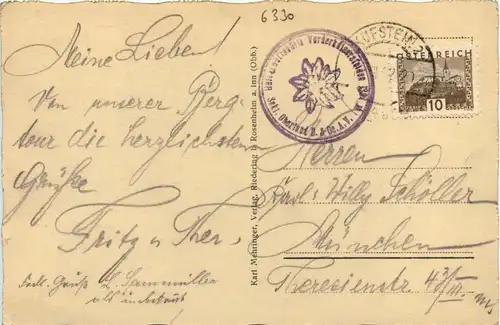 6330
Meine Lieben!
Von unserer Berg-
tour die herzlichsten
Grüße
Fritz u. Ther.
Frdl. Gruß L.
Karl Mehringer, Verlag, Riedering b. Rosenheim a. Inn (Obb.)
Vorderkaiserfelden
Sekt. Oberland D. & Oe. A. V.
KUFSTEIN
ÖSTERREICH
10
Herren
Karl Willy Schöller
München
Theresienstr. 43/III.